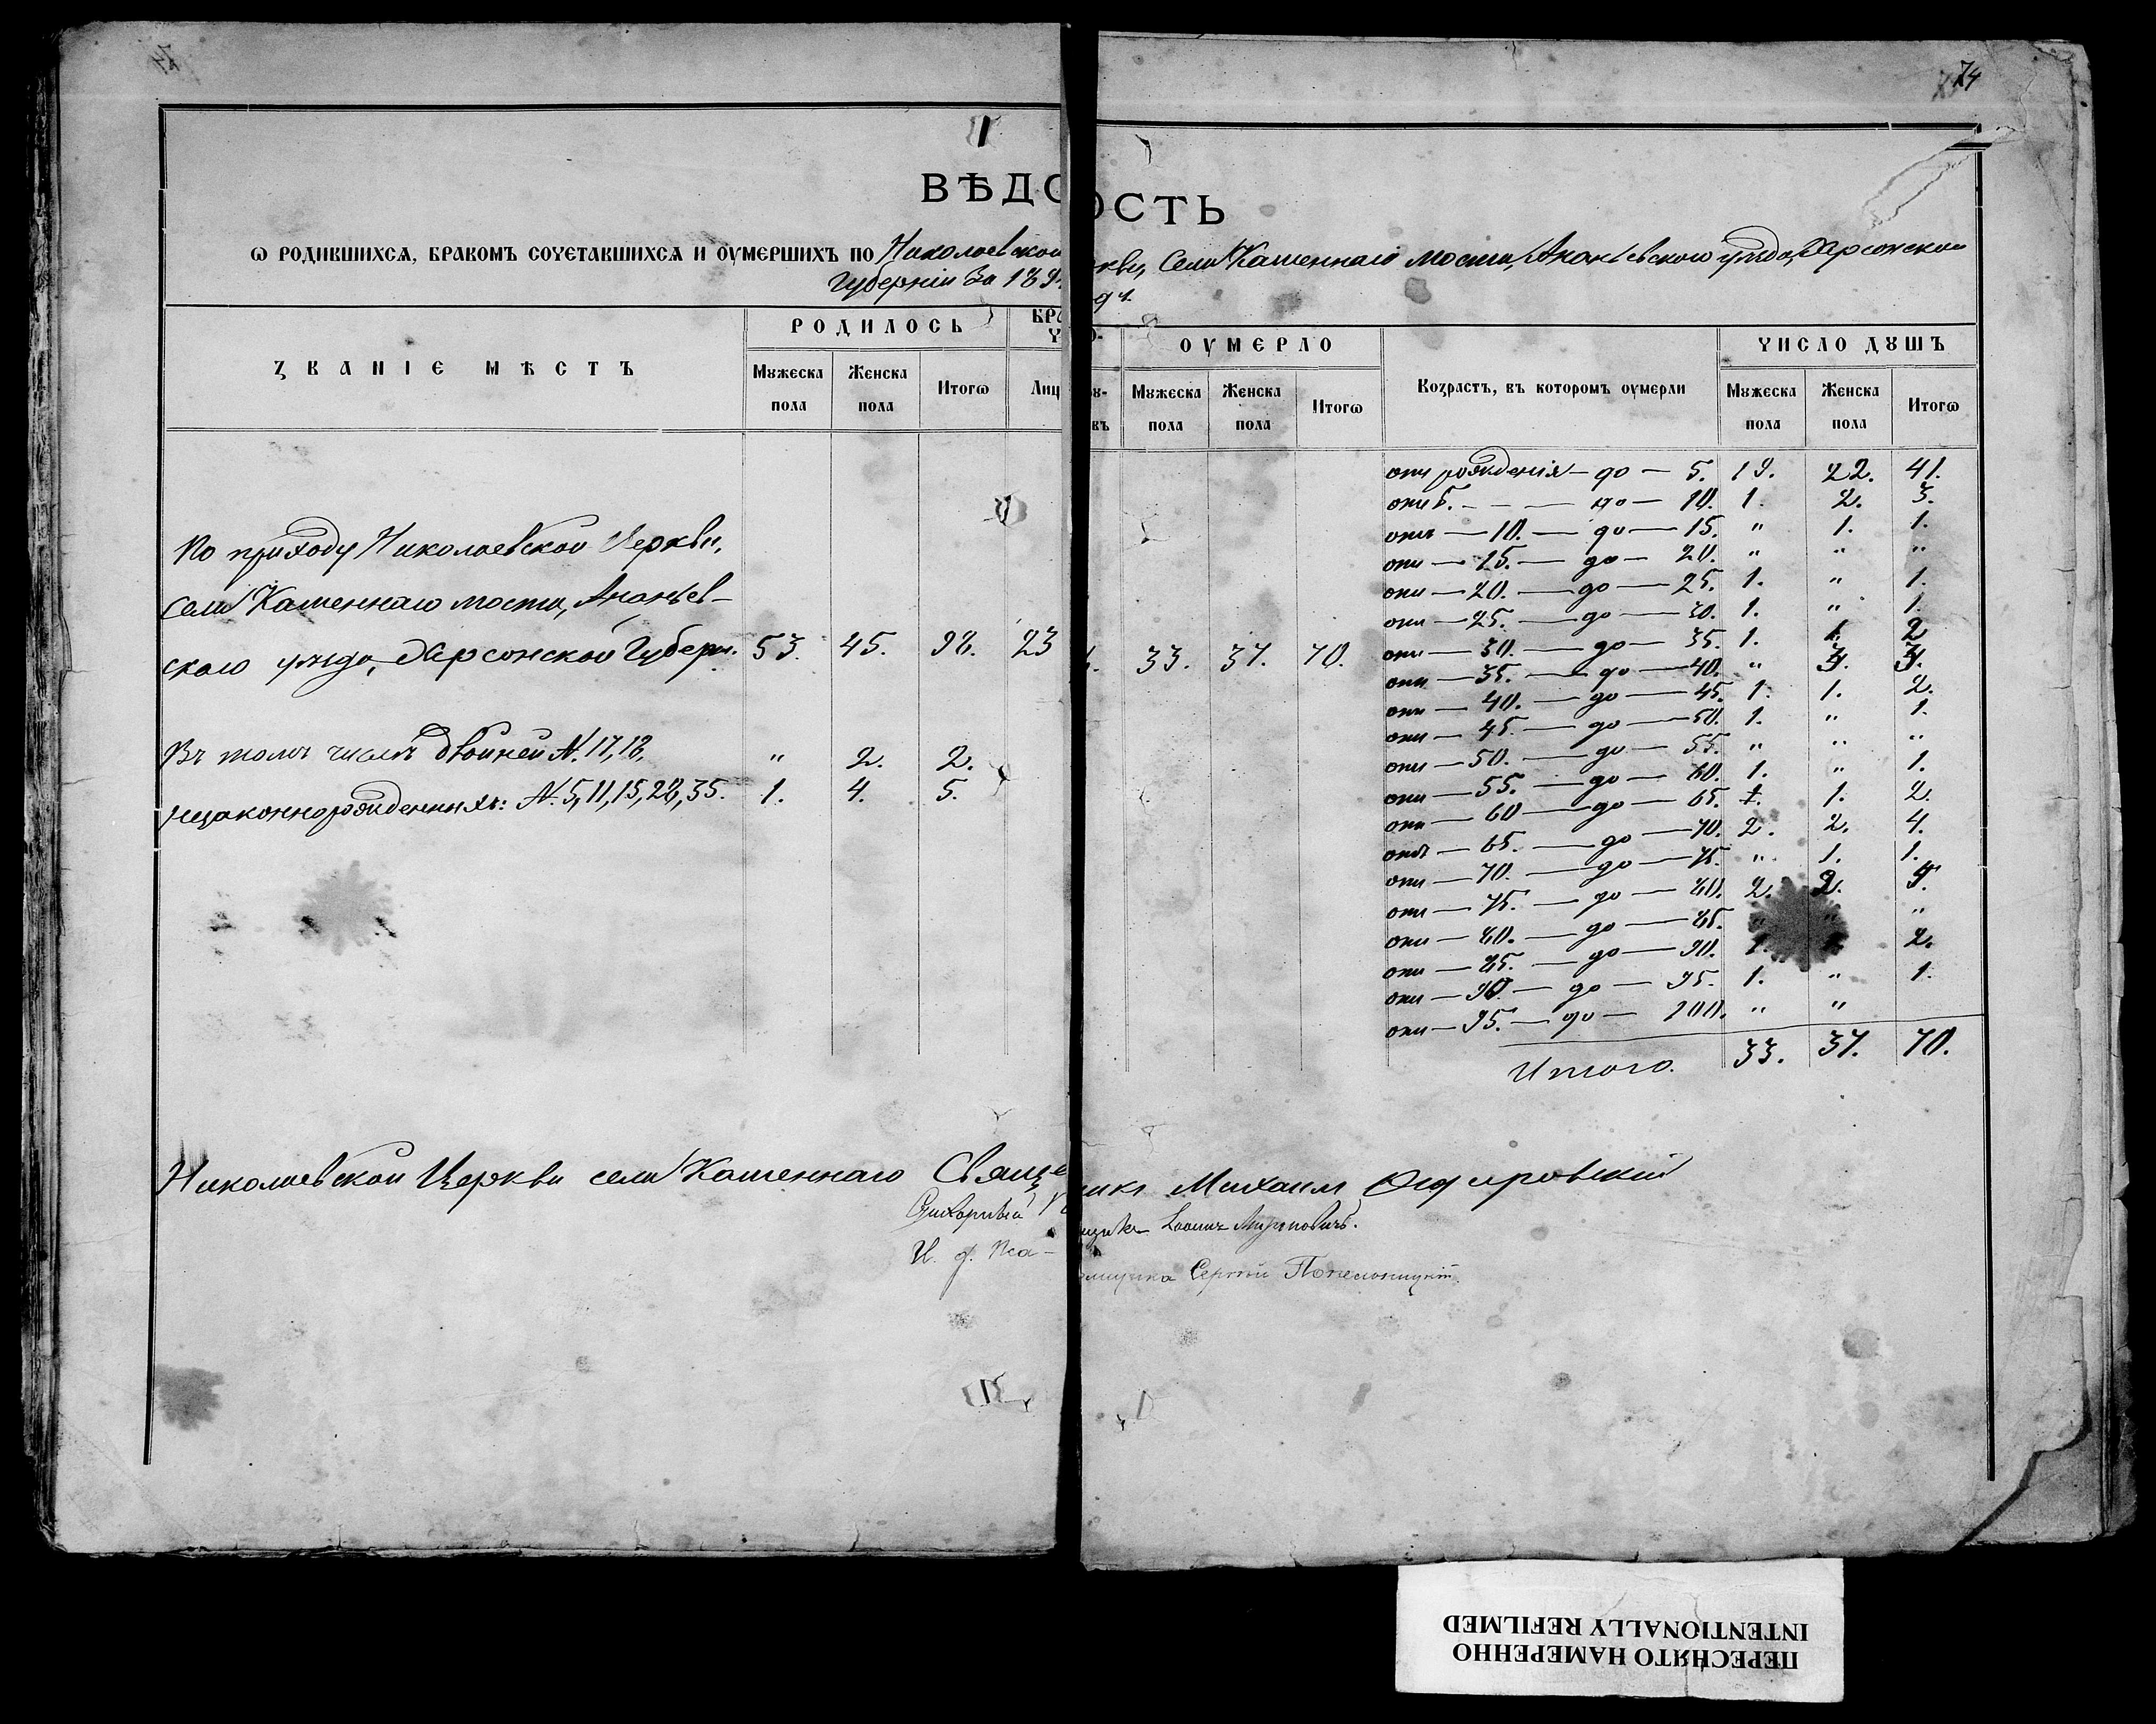 74
I
ВѢДО ОСТЬ
Ѡ РОДИВШИХСѦ, БРАКОМЪ СОЧЕТАВШИХСѦ И ОУМЕРШИХЪ ПО Николаевской
кви, Села Каменнаго моста, Ананьевскаго уѣзда, Херсонской
Губерніи За 189
ЗВАНІЕ МѢСТЪ
РОДИЛОСЬ
Мꙋжеска пола
Женска пола
Итогѡ
БРА
Лиц
ОУМЕРЛО
Мꙋжеска пола
Женска пола
Итогѡ
Возрастъ, въ которомъ оумерли
ЧИСЛО ДꙊШЪ
Мꙋжеска пола
Женска пола
Итогѡ
По приходу Николаевской Церкви,
села Каменнаго моста, Ананьев-
скаго уѣзда, Херсонской Губерн. 53. 45. 98. 23
33. 37. 70.
Въ томъ числѣ двойней N. 17, 18, " 2. 2.
незаконнорожденныхъ: N. 5, 11, 15, 28, 35. 1. 4. 5.
отъ рожденія — до — 5. 19. 22. 41.
отъ 5. — — до — 10. 1. 2. 3.
отъ — 10. — до — 15. " 1. 1.
отъ — 15. — до — 20. " " "
отъ — 20. — до — 25. 1. " 1.
отъ — 25. — до — 30. 1. " 1.
отъ — 30. — до — 35. 1. 1. 2
отъ — 35. — до — 40. "
отъ — 40. — до — 45. 1. 1. 2.
отъ — 45. — до — 50. 1. " 1.
отъ — 50. — до — 55. " " "
отъ — 55. — до — 60. 1. " 1.
отъ — 60 — до — 65. 1. 1. 2.
отъ — 65. — до — 70. 2. 2. 4.
отъ — 70. — до — 75. " 1. 1.
отъ — 75. — до — 80. 2. 2. 4.
отъ — 80. — до — 85. " " "
отъ — 85. — до — 90. 1. 1. 2.
отъ — 90. — до — 95. 1. " 1.
отъ — 95. — до — 100. " "
Итого. 33. 37. 70.
Николаевской Церкви села Каменнаго Свяще никъ Михаилъ
И. д. Пса- ломщика Сергій
ПЕРЕСНЯТО НАМЕРЕННО
INTENTIONALLY REFILMED